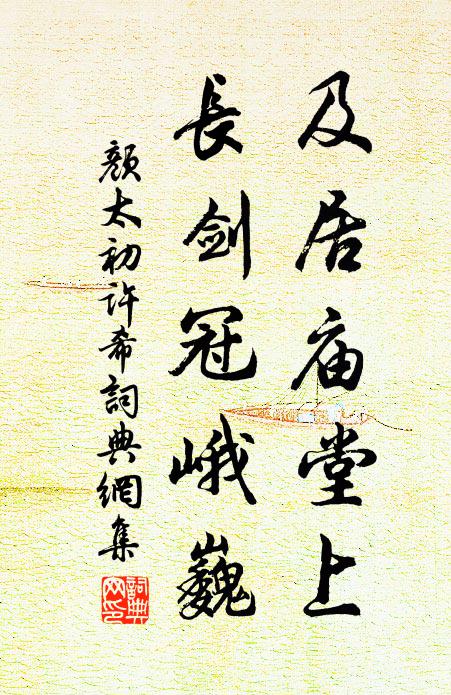 及居庙堂上
長剑冠峨巍
顏太初许希詞典網集
詞典
网印